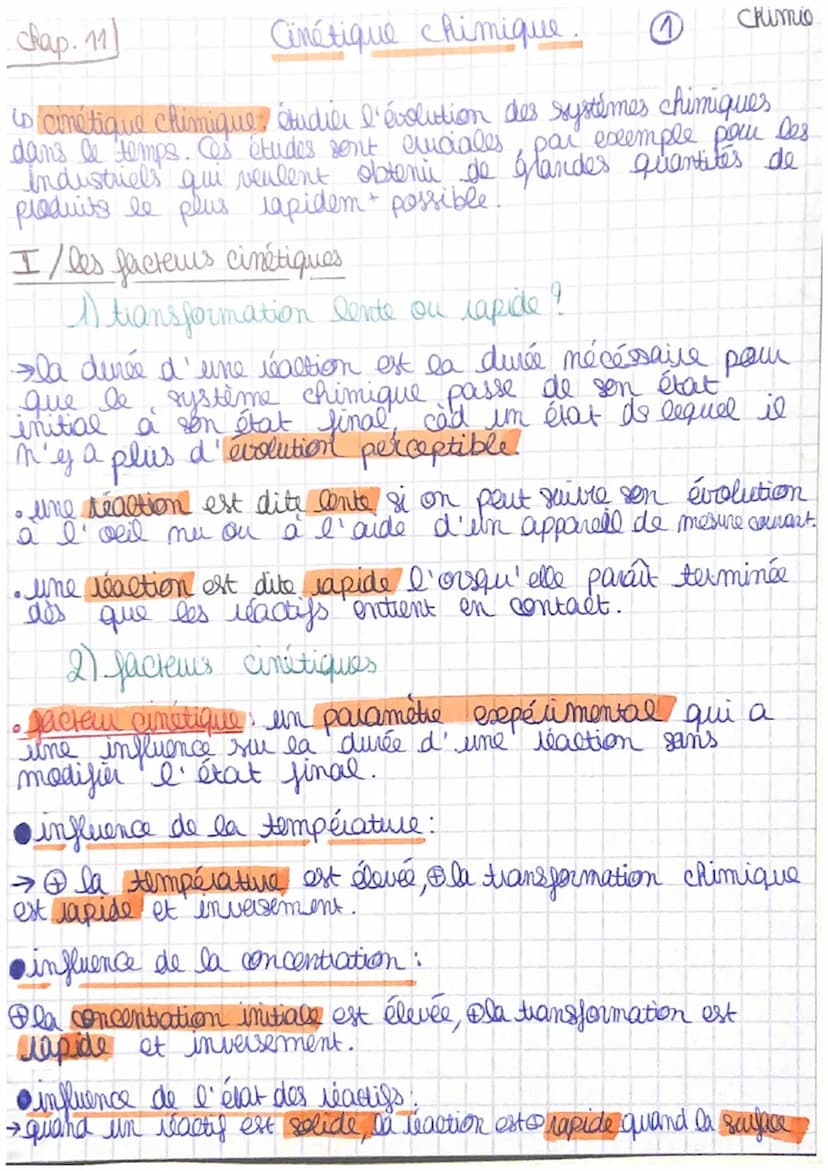 Chap. 11
Cinétique chimique.
1
Chimie
↳ cinétique chimique : étudier l'évolution des systèmes chimiques
dans le temps. Ces études sont cruciales, par exemple pour les
industriels qui veulent obtenir de grandes quantités de
produits le plus rapidemt possible.
I / Les facteurs cinétiques
1) transformation lente ou rapide ?
→ la durée d'une réaction est la durée nécéssaire pour
que le système chimique passe de son état
initial à son état final, càd un état ds lequel il
n'y a plus d'évolution perceptible.
• une réaction est dite lente si on peut suivre son évolution
à l'oeil nu ou à l'aide d'un appareil de mesure courant.
• une réaction est dite rapide l'orsqu'elle paraît terminée
dès que les réactifs entrent en contact.
2) facteurs cinétiques
• facteur cinétique : un paramètre expérimental qui a
une influence sur la durée d'une réaction sans
modifier l'état final.
● influence de la température :
→ ⊕ la température est élevée, ⊕ la transformation chimique
est rapide et inversement.
● influence de la concentration :
⊕ la concentration initiale est élevée, ⊕ la transformation est
rapide et inversement.
● influence de l'état des réactifs :
→ quand un réactif est solide, la réaction est ⊕ rapide quand la surface